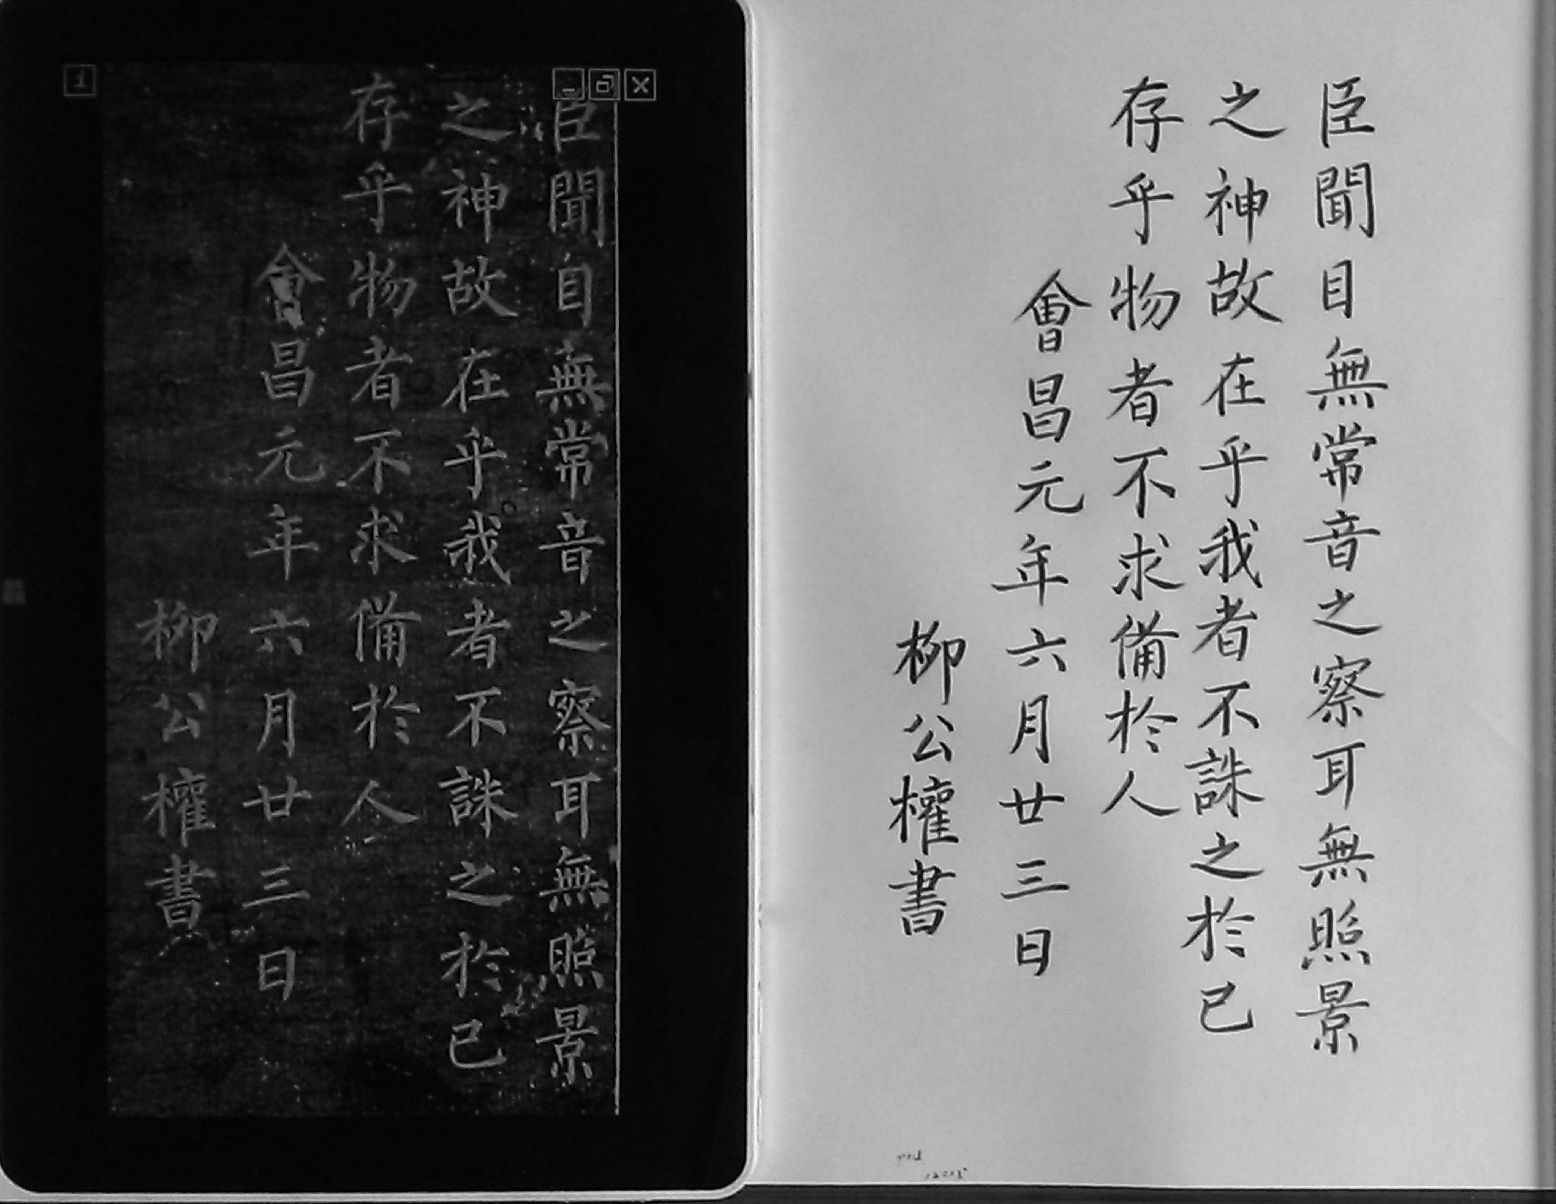 臣聞目無常音之察耳無照景
之神故在乎我者不誅之於已
存乎物者不求備於人
會昌元年六月廿三日
柳公權書
臣聞目無常音之察耳無照景
之神故在乎我者不誅之於已
存乎物者不求備於人
會昌元年六月廿三日
柳公權書